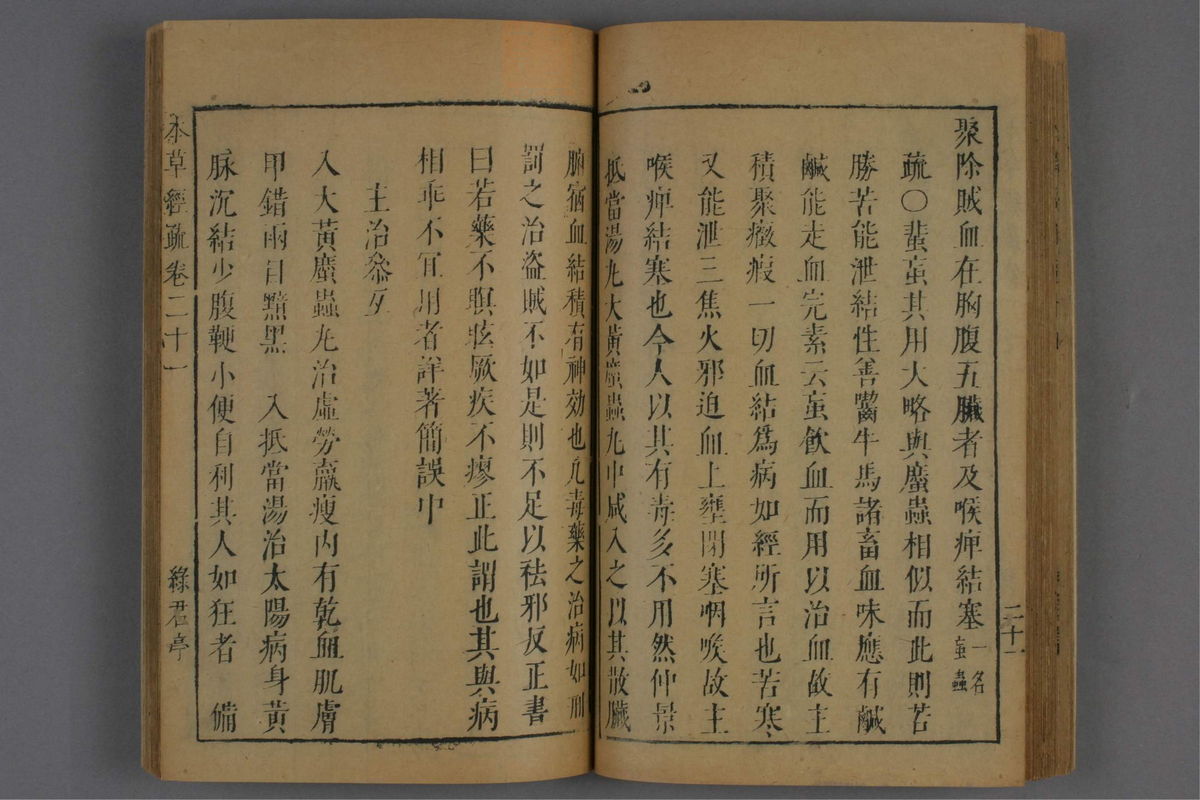 聚除賊血在胸腹五臟者及喉痺結塞一名蜚蟲
疏○蜚蝱其用大略與䗪蟲相似而此則苦
勝苦能泄結性善嚙牛馬諸畜血味應有鹹
鹹能走血完素云蝱飲血而用以治血故主
積聚癥瘕一切血結爲病如經所言也苦寒
又能泄三焦火邪迫血上壅閉塞咽喉故主
喉痺結塞也今人以其有毒多不用然仲景
抵當湯丸大黃䗪蟲丸中咸入之以其散臟
腑宿血結積有神効也凡毒藥之治病如刑
罰之治盜賊不如是則不足以祛邪反正書
曰若藥不瞑眩厥疾不瘳正此謂也其與病
相乖不宜用者詳著簡誤中
主治叅互
入大黃䗪蟲丸治虛勞羸瘦內有乾血肌膚
甲錯兩目黯黑 入抵當湯治太陽病身黃
脉沉結少腹鞕小便自利其人如狂者 備
本草經疏 卷二十一 綠君亭
二十一